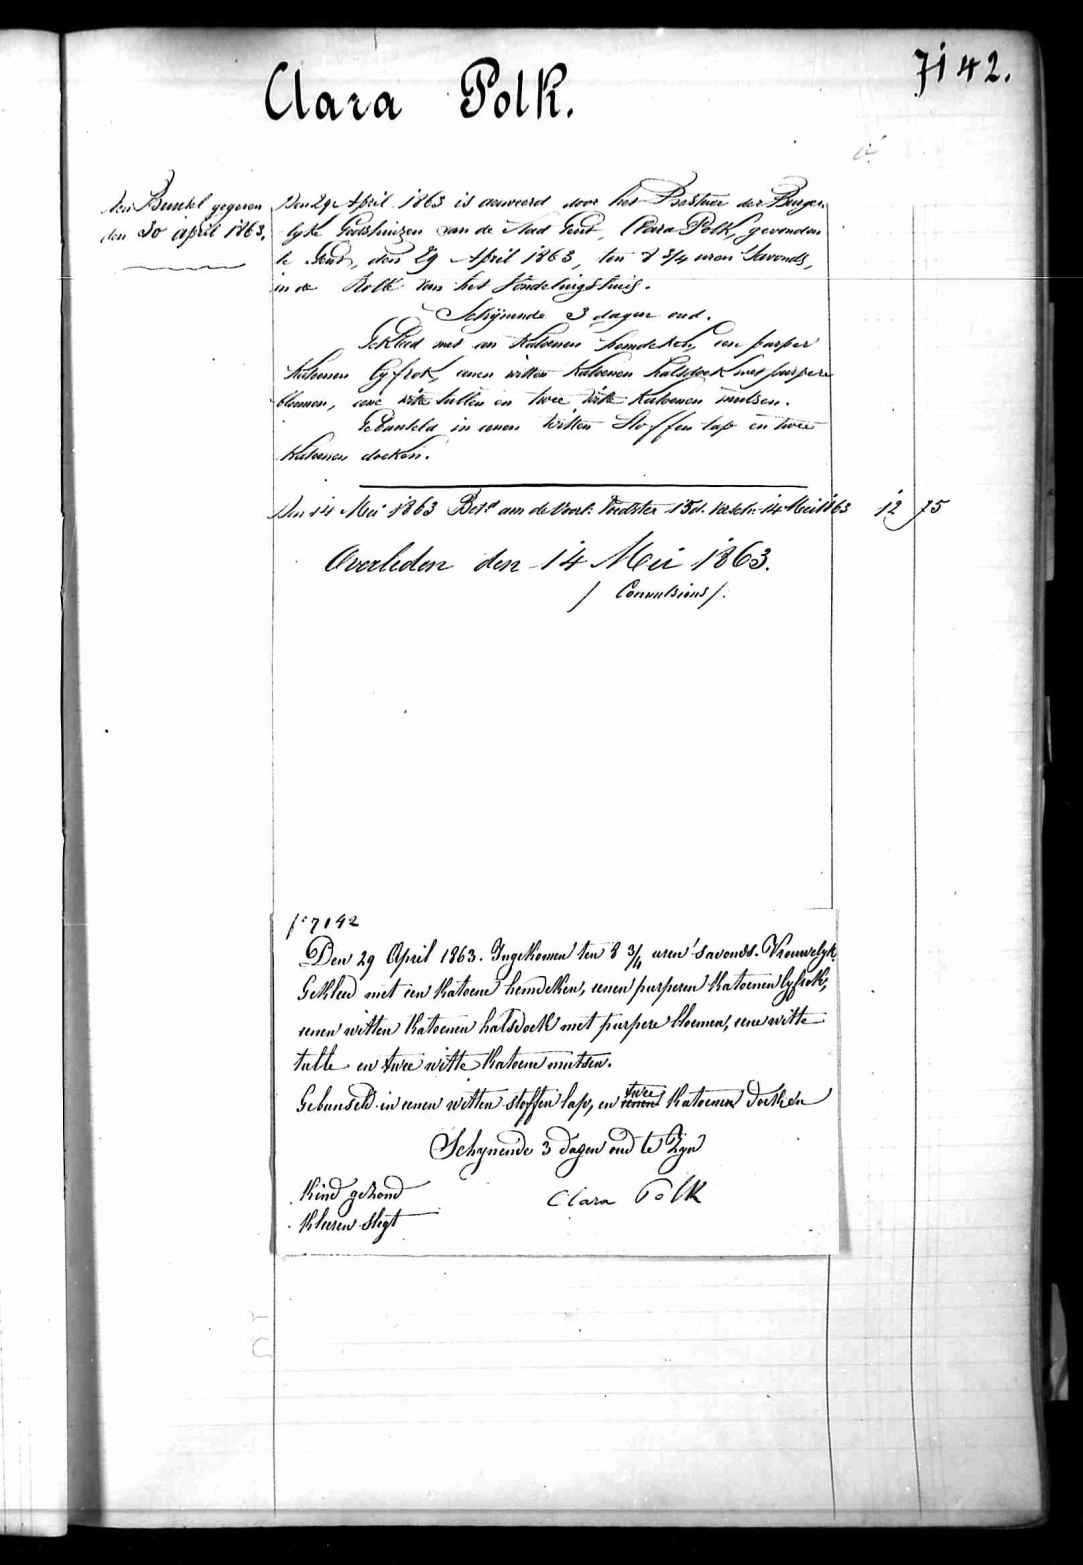 7142.
Clara Polk.
den Bundel gegeven
den 30 april 1863.
Den 29 April 1863 is aenveerd door het Bestuer der Burger-
lyke Godshuizen van de Stad Gend, Clara Polk, gevonden
te Gend, den 29 April 1863, ten 8 3/4 uren 'savonds,
in de Rolle van het Vondelingshuis.
Schijnende 3 dagen oud.
Gekleed met een katoenen hemdeken, een purper
katoenen lyfrok, eenen witten katoenen halsdoek met purpere
bloemen, eene witte tullen en twee witte katoenen mutsen.
Gebunseld in eenen witten stoffen lap en twee
katoenen doeken.
Den 14 Mei 1863 Bet.d aen de Voedster 15 d. 14 Mei 1863 12 75
Overleden den 14 Mei 1863.
/ Convulsions /.
f° 7142
Den 29 April 1863. Ingekomen ten 8 3/4 uren 'savonds. Vrouwelyk.
Gekleed met een katoene hemdeken, eenen purperen katoenen lyfrok,
eenen witten katoenen halsdoek met purpere bloemen, eene witte
tulle en twee witte katoene mutsen.
Gebunseld in eenen witten stoffen lap, en eenen twee katoenen doeken
Schynende 3 dagen oud te Zyn
Kind gezond
Clara Polk
Kleeren slegt